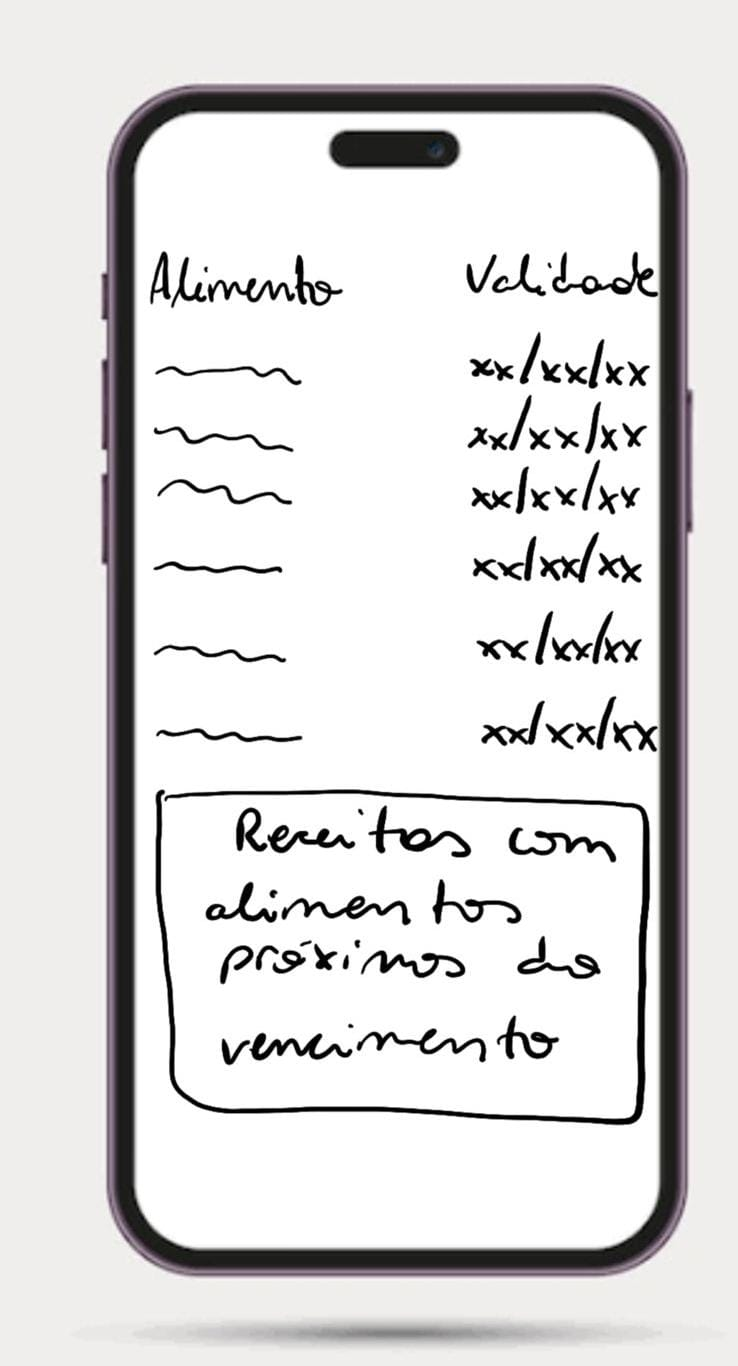 Alimento Validade
xx/xx/xx
xx/xx/xx
xx/xx/xx
xx/xx/xx
xx/xx/xx
xx/xx/xx
Receitas com
alimentos
próximos do
vencimento